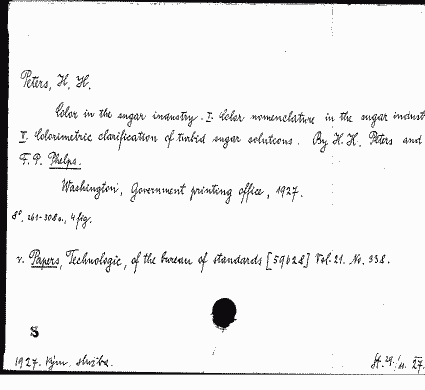 Peters, H. H.
Color in the sugar industry. I. Color nomenclature in the sugar indust
II. Colorimetric clarification of turbid sugar solutions. By H. H. Peters and
F. P. Phelps.
Washington, Government printing office, 1927.
8°. 261-308 s., 4 fig.
v. Papers, Technologic, of the bureau of standards [59628] Vol. 21. No. 338.
S
1927. výn. služba.
27.